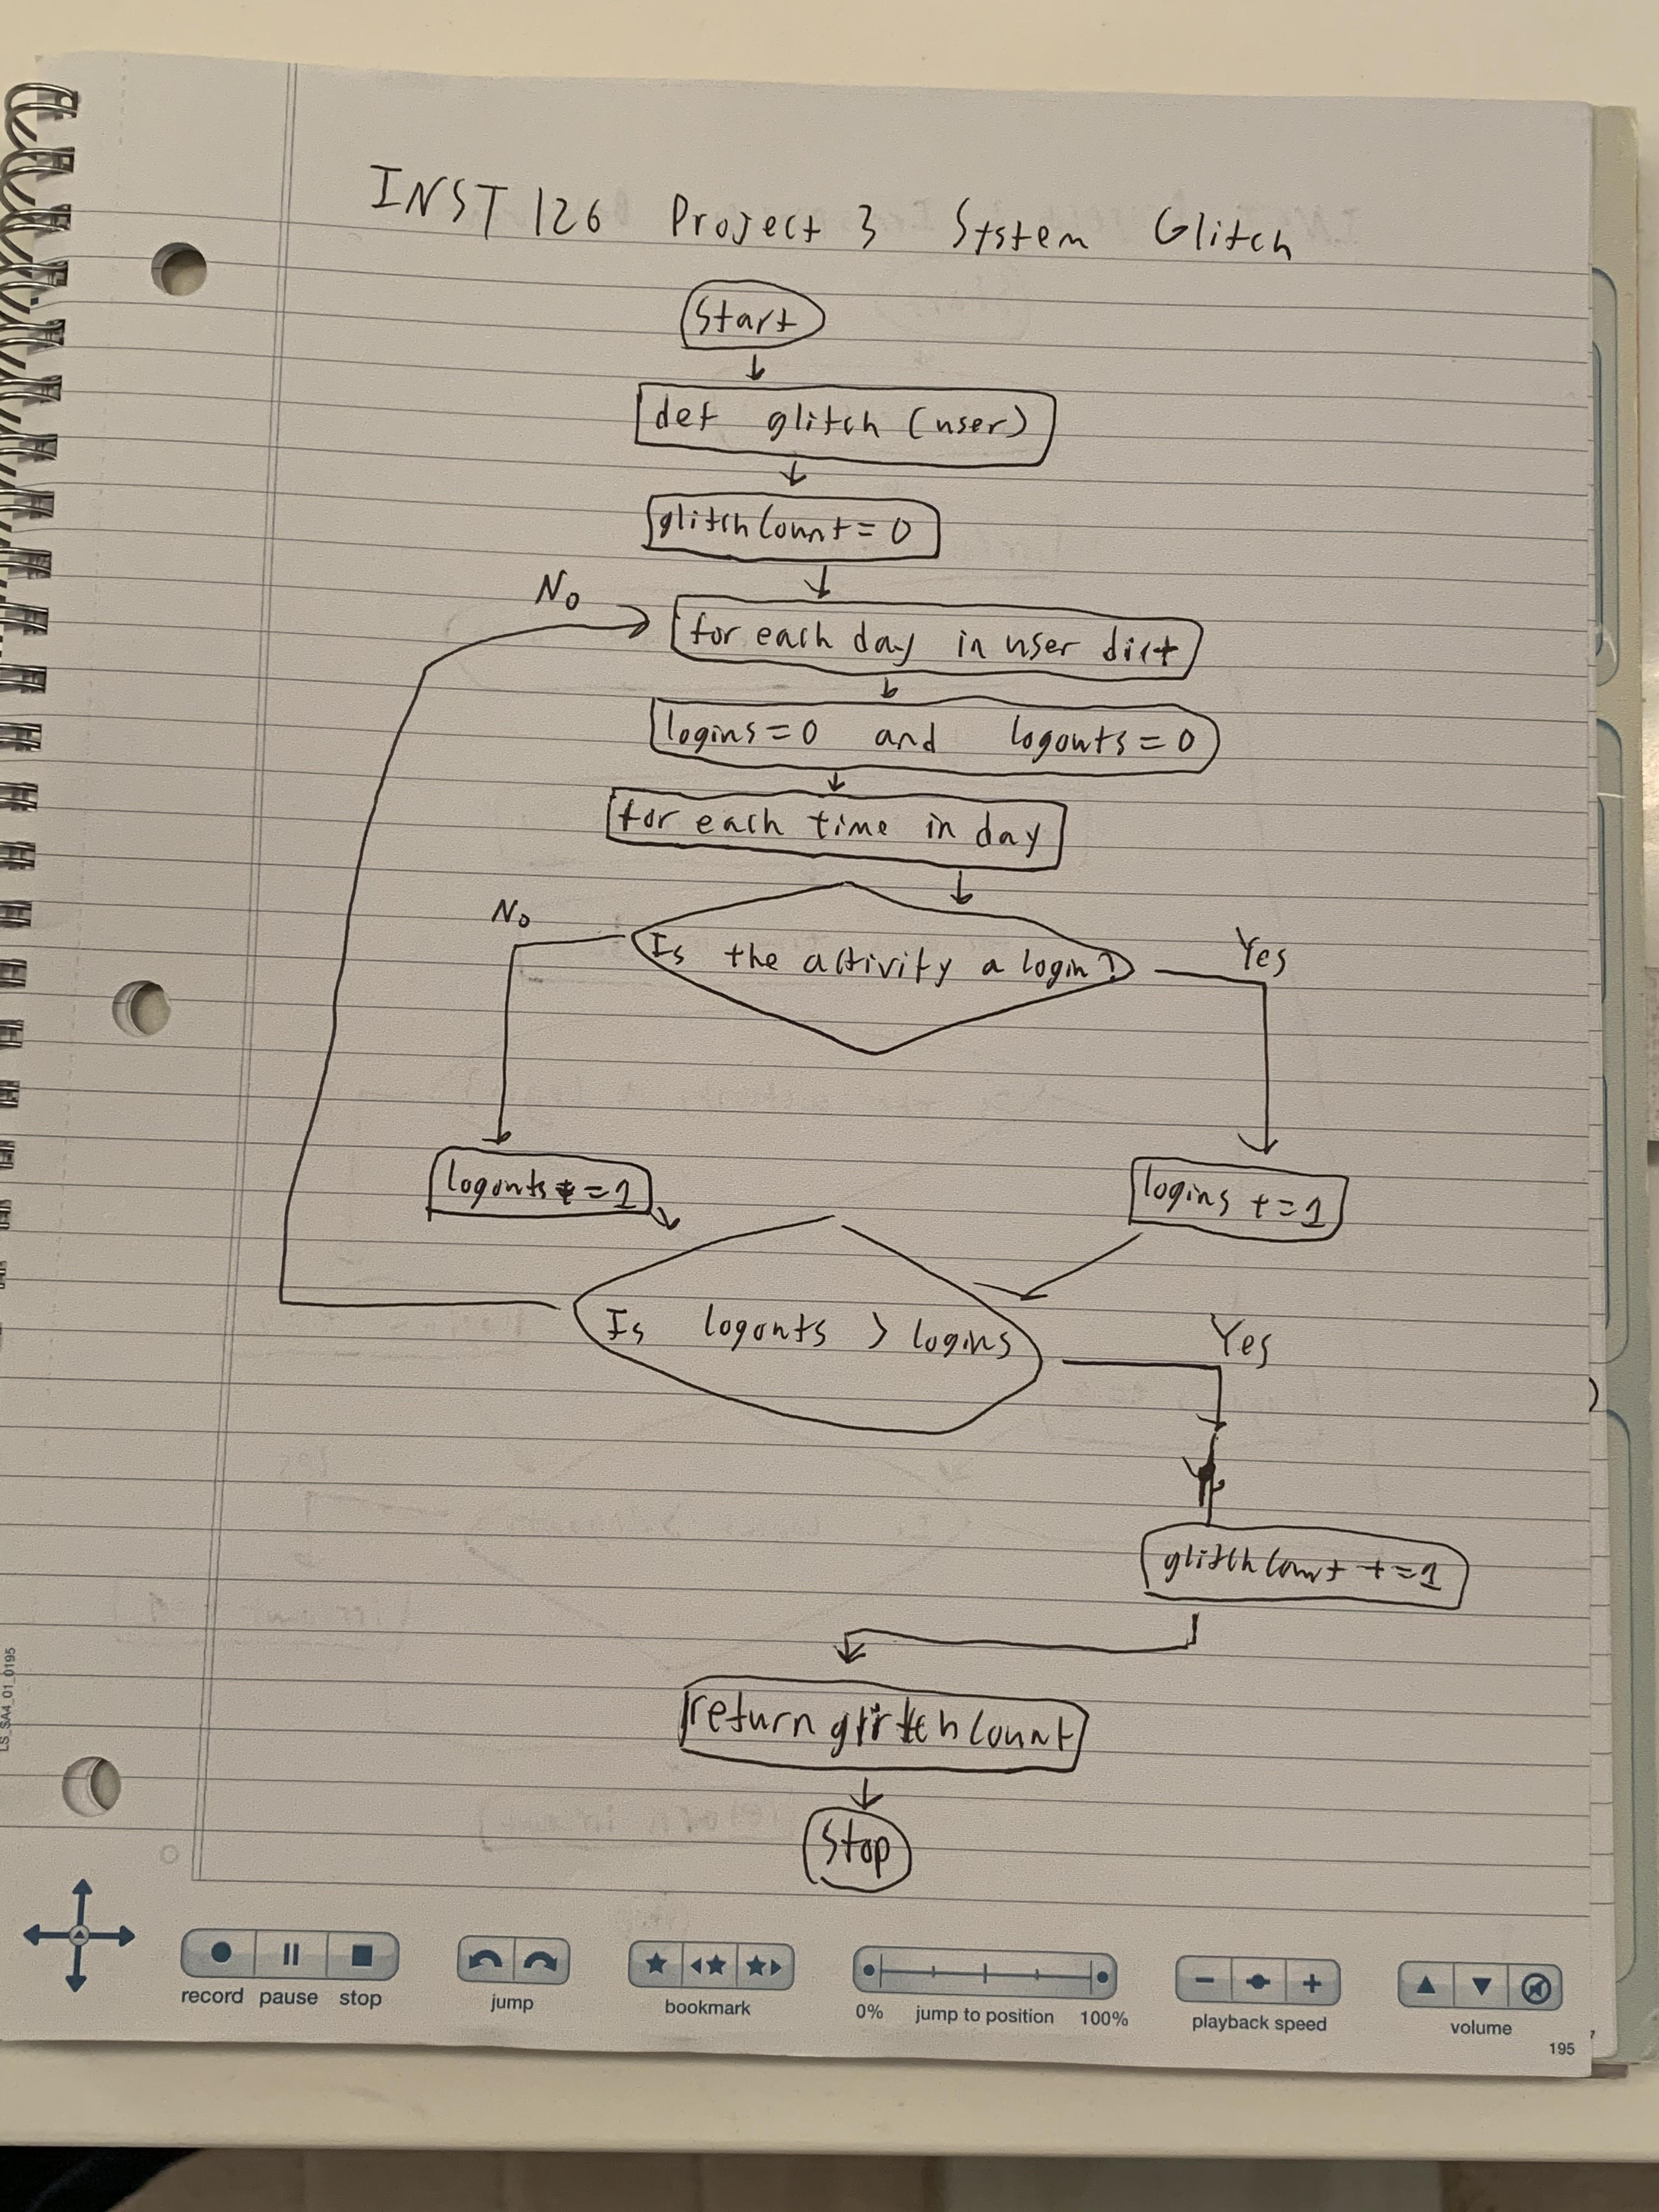 INST 126 Project 3 System Glitch
Start
def glitch (user)
glitchCount = 0
No
for each day in user dict
logins = 0 and logouts = 0
for each time in day
No
Is the activity a login?
Yes
logouts += 1
logins += 1
Is logouts > logins
Yes
glitchCount += 1
return glitchCount
Stop
LS_SA4_01_0195
record pause stop
jump
bookmark
0% jump to position 100%
playback speed
volume
195